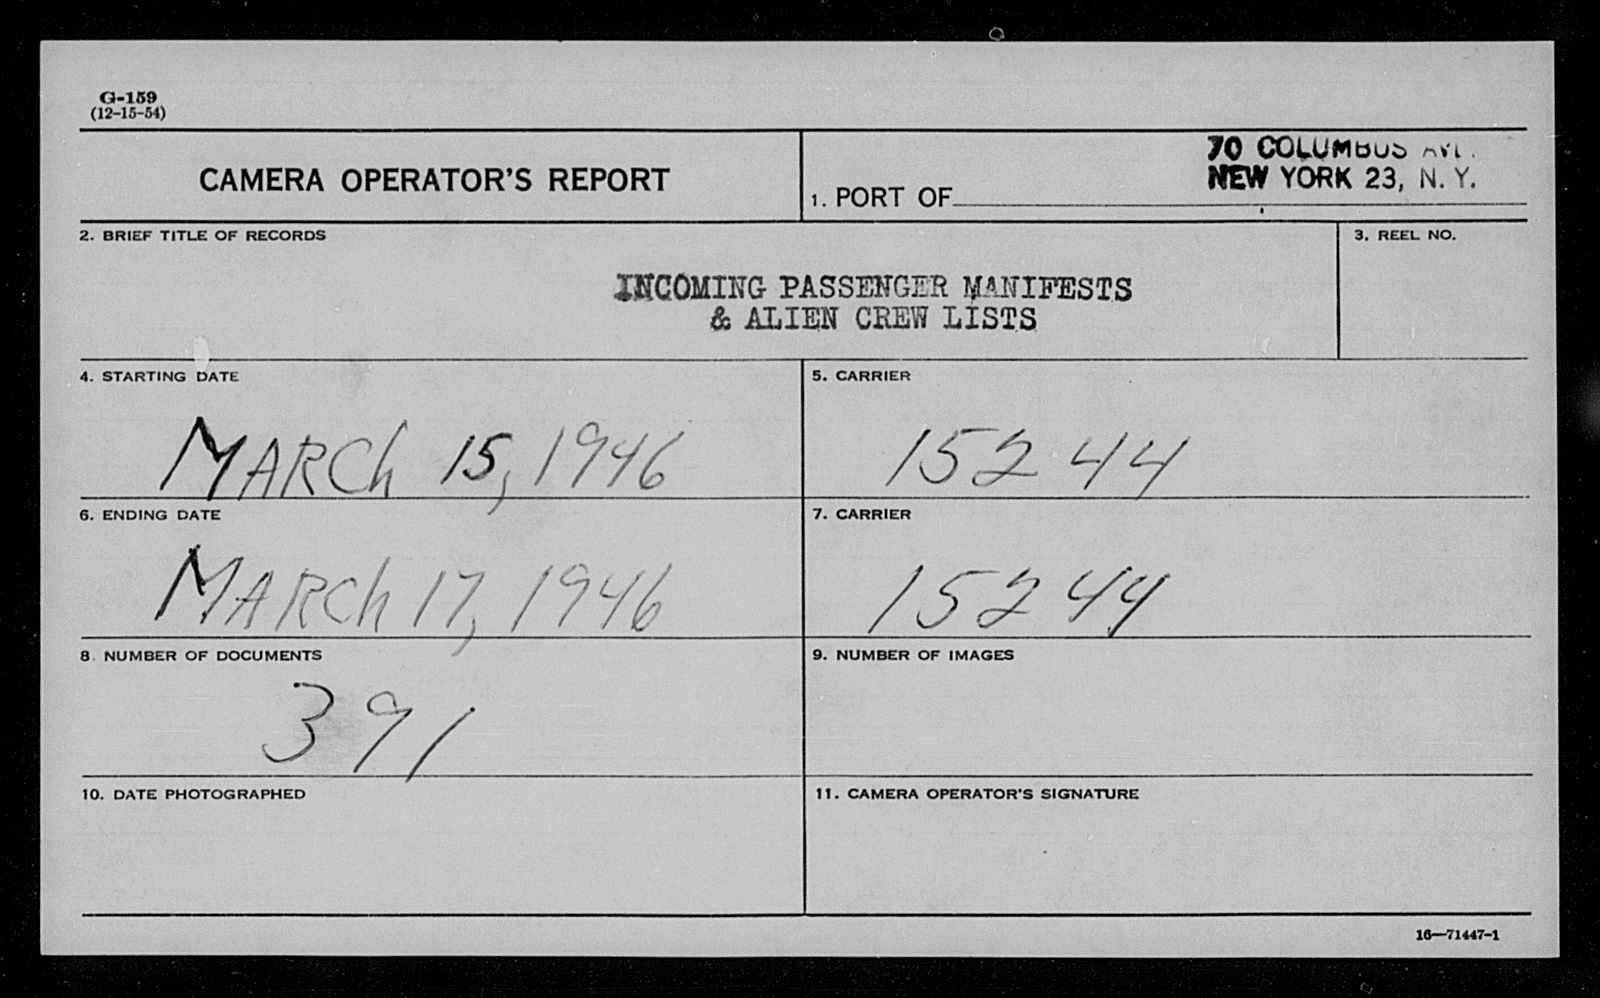 G-159
(12-15-54)
CAMERA OPERATOR'S REPORT
1. PORT OF
70 COLUMBUS AVE.
NEW YORK 23, N. Y.
2. BRIEF TITLE OF RECORDS
3. REEL NO.
INCOMING PASSENGER MANIFESTS
& ALIEN CREW LISTS
4. STARTING DATE
MARCh 15, 1946
5. CARRIER
15244
6. ENDING DATE
MARCh 17, 1946
7. CARRIER
15244
8. NUMBER OF DOCUMENTS
391
9. NUMBER OF IMAGES
10. DATE PHOTOGRAPHED
11. CAMERA OPERATOR'S SIGNATURE
16—71447-1